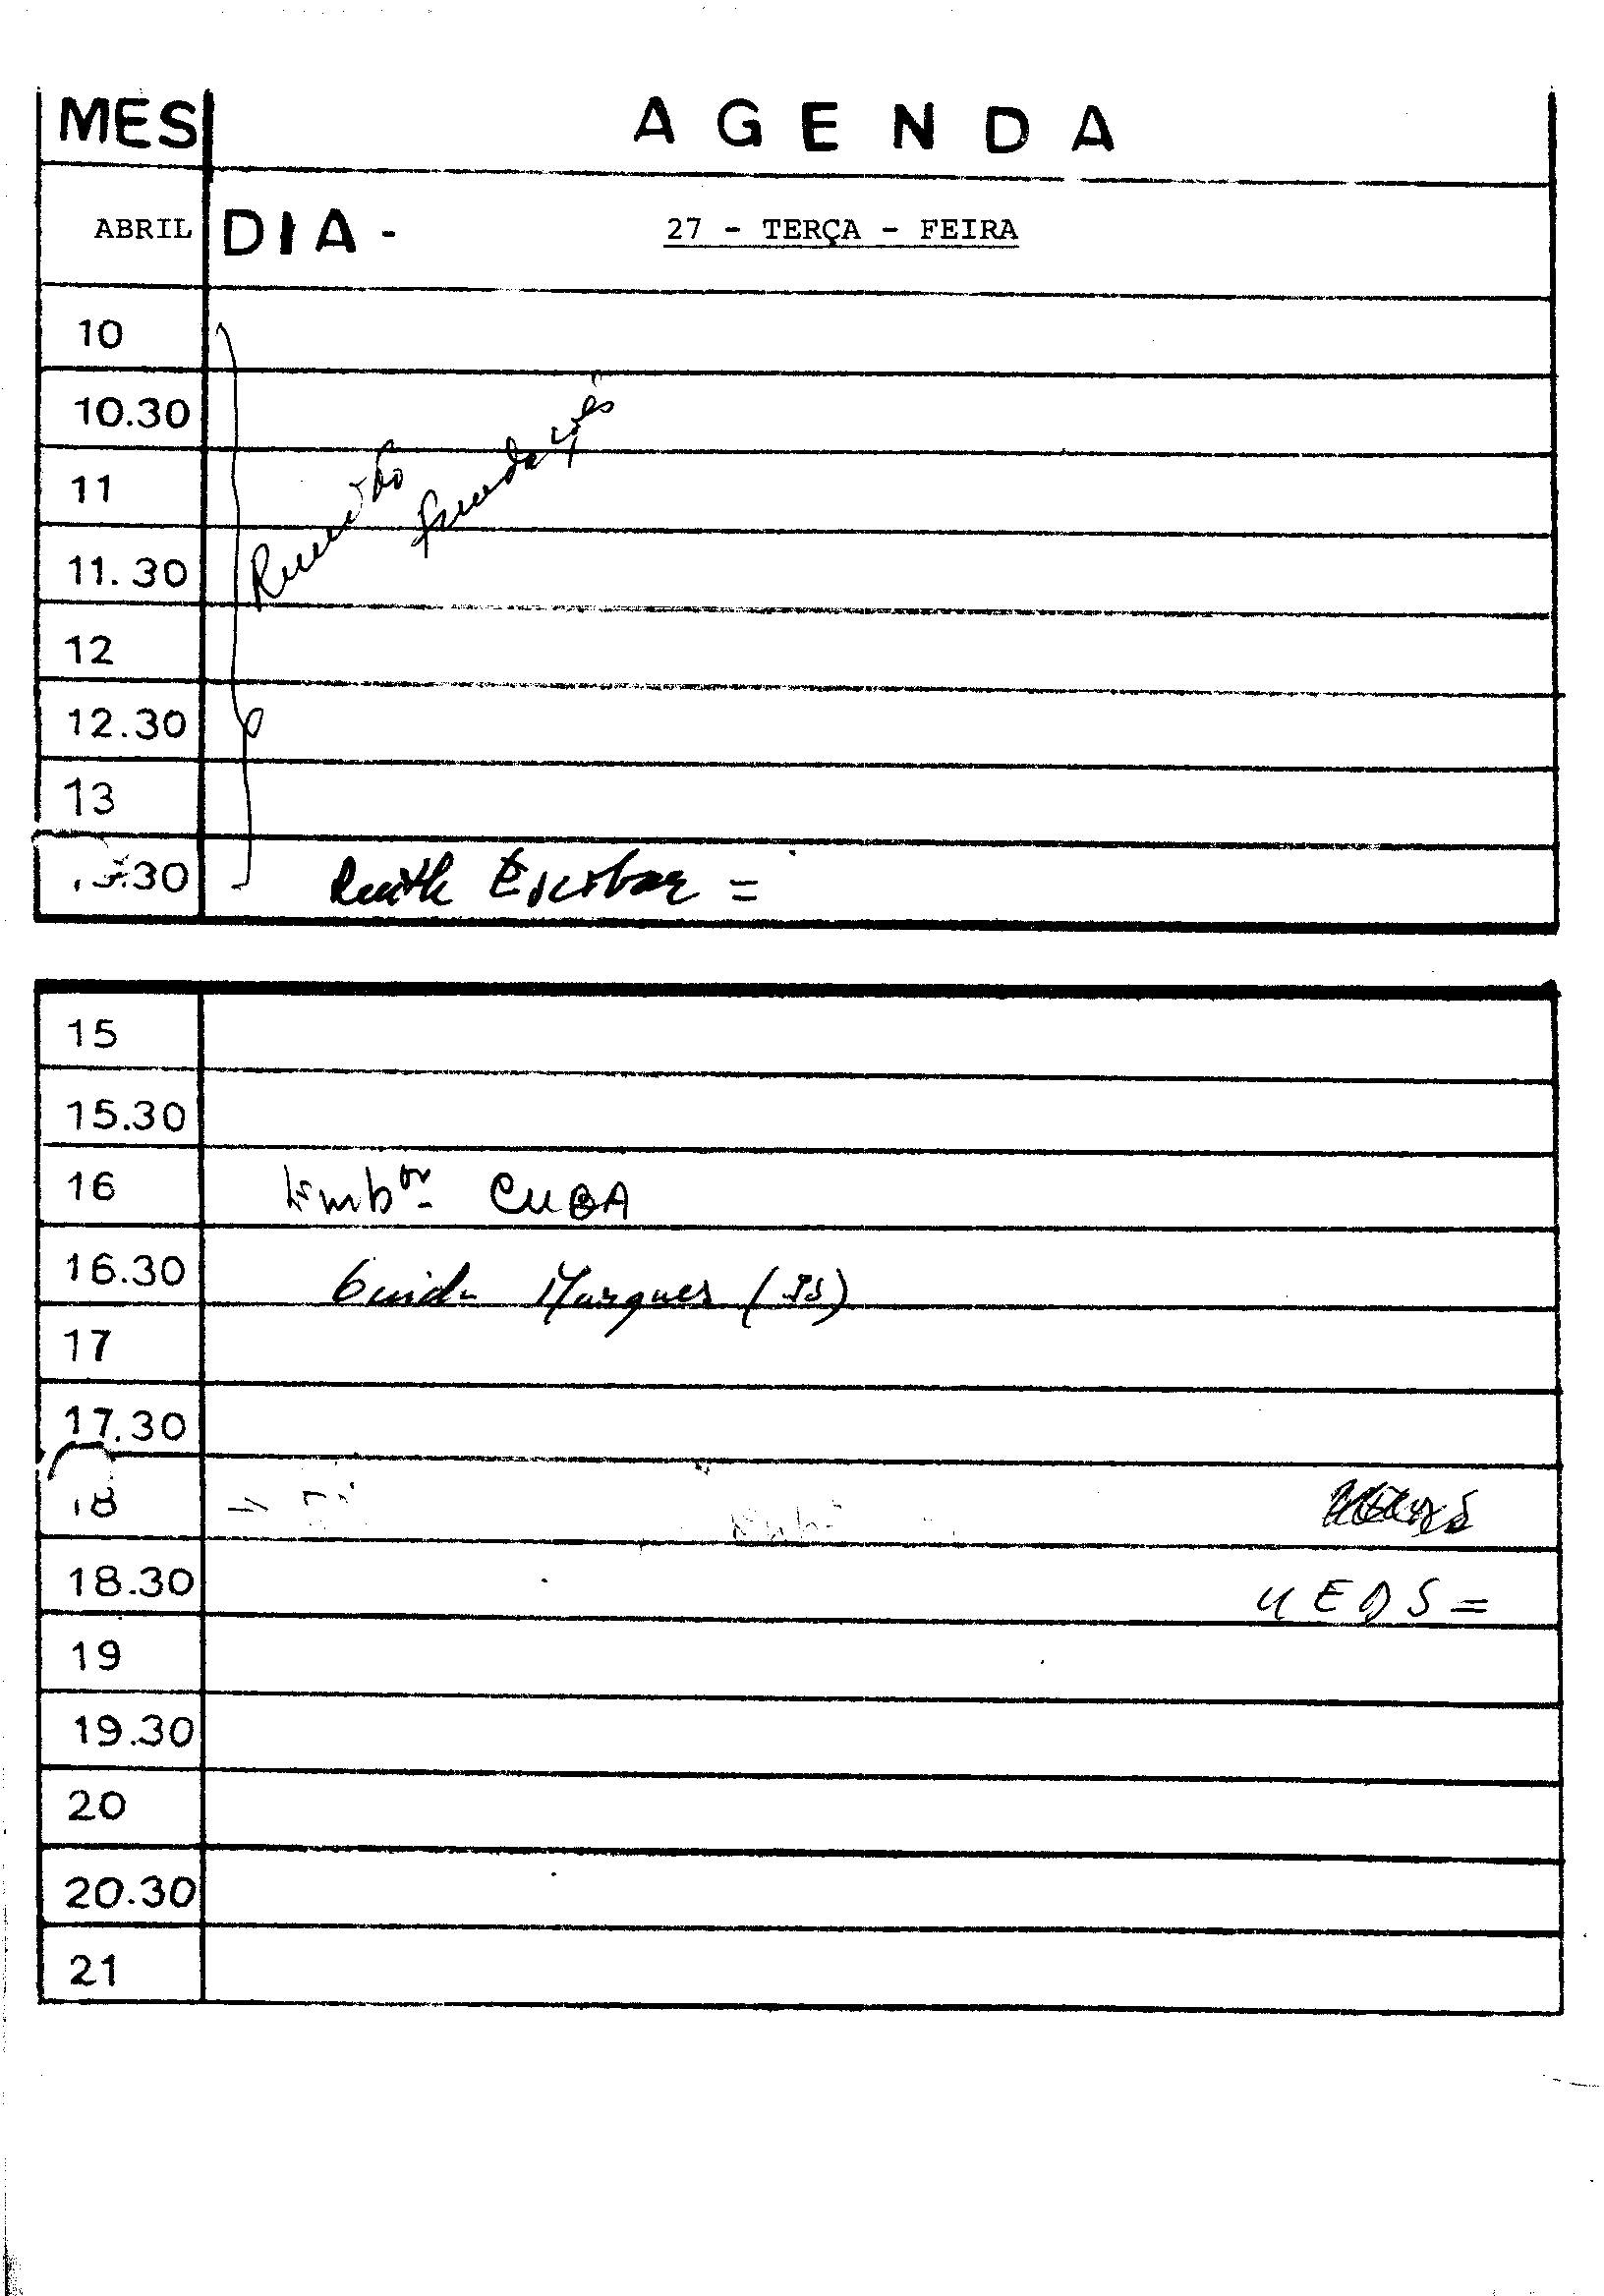 MES AGENDA
ABRIL DIA - 27 - TERÇA - FEIRA
10
10.30
11
11.30 Reunião fundações
12
12.30
13
13.30 Ruth Escobar =
15
15.30
16 Embor. CUBA
16.30 Marques (
17
17.30
18
18.30 UEDS =
19
19.30
20
20.30
21